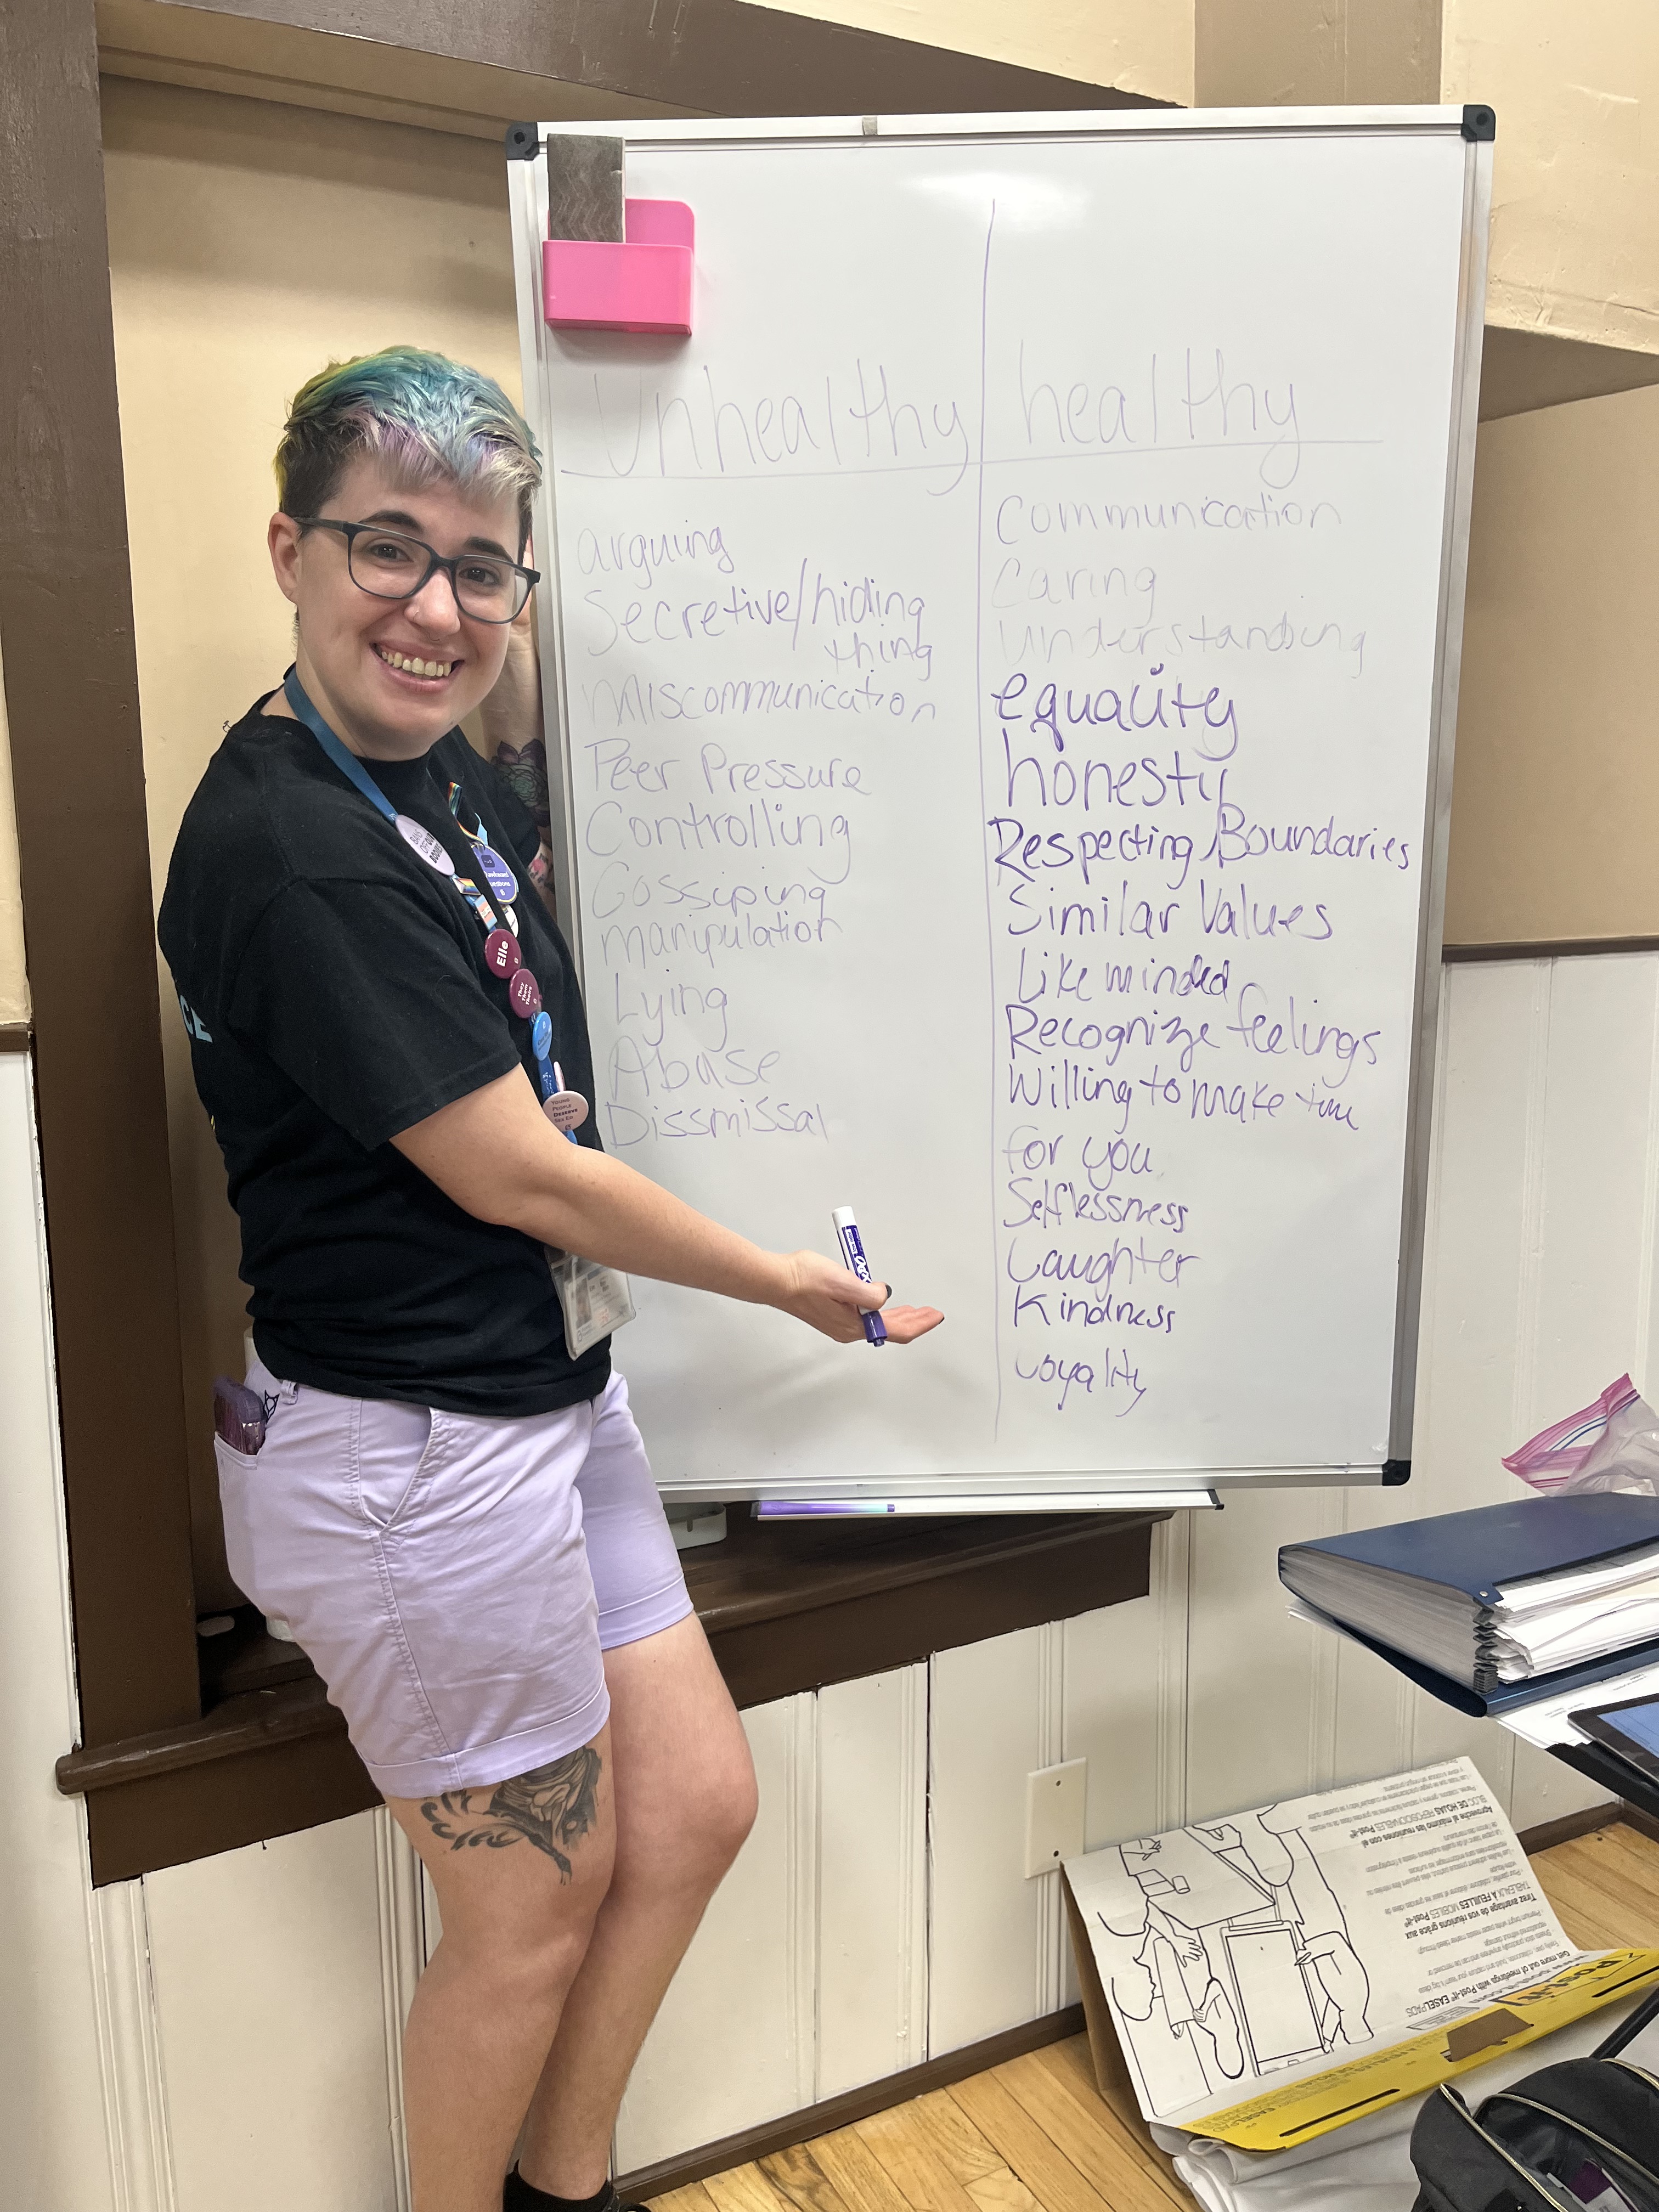 Unhealthy
arguing
Secretive/hiding
thing
Miscommunication
Peer Pressure
Controlling
Gossiping
manipulation
Lying
Abuse
Dissmissal
healthy
Communication
Caring
Understanding
equality
honesty
Respecting/Boundaries
Similar Values
Like minded
Recognize feelings
Willing to make time
for you
Selflessness
Laughter
Kindness
Loyality
BANS
OFF OUR
BODIES
awkward
uestions
Elle
They
Them
Theirs
YOUNG
PEOPLE
Deserve
Sex Ed
CE
EXPO
Post-it
Get more out of meetings with Post-it® EASEL PADS
Tirez avantage de vos réunions grâce aux
TABLEAUX À FEUILLES MOBILES Post-it®
Aproveche al máximo las reuniones con el
BLOC DE HOJAS REPOSICIONABLES Post-it®